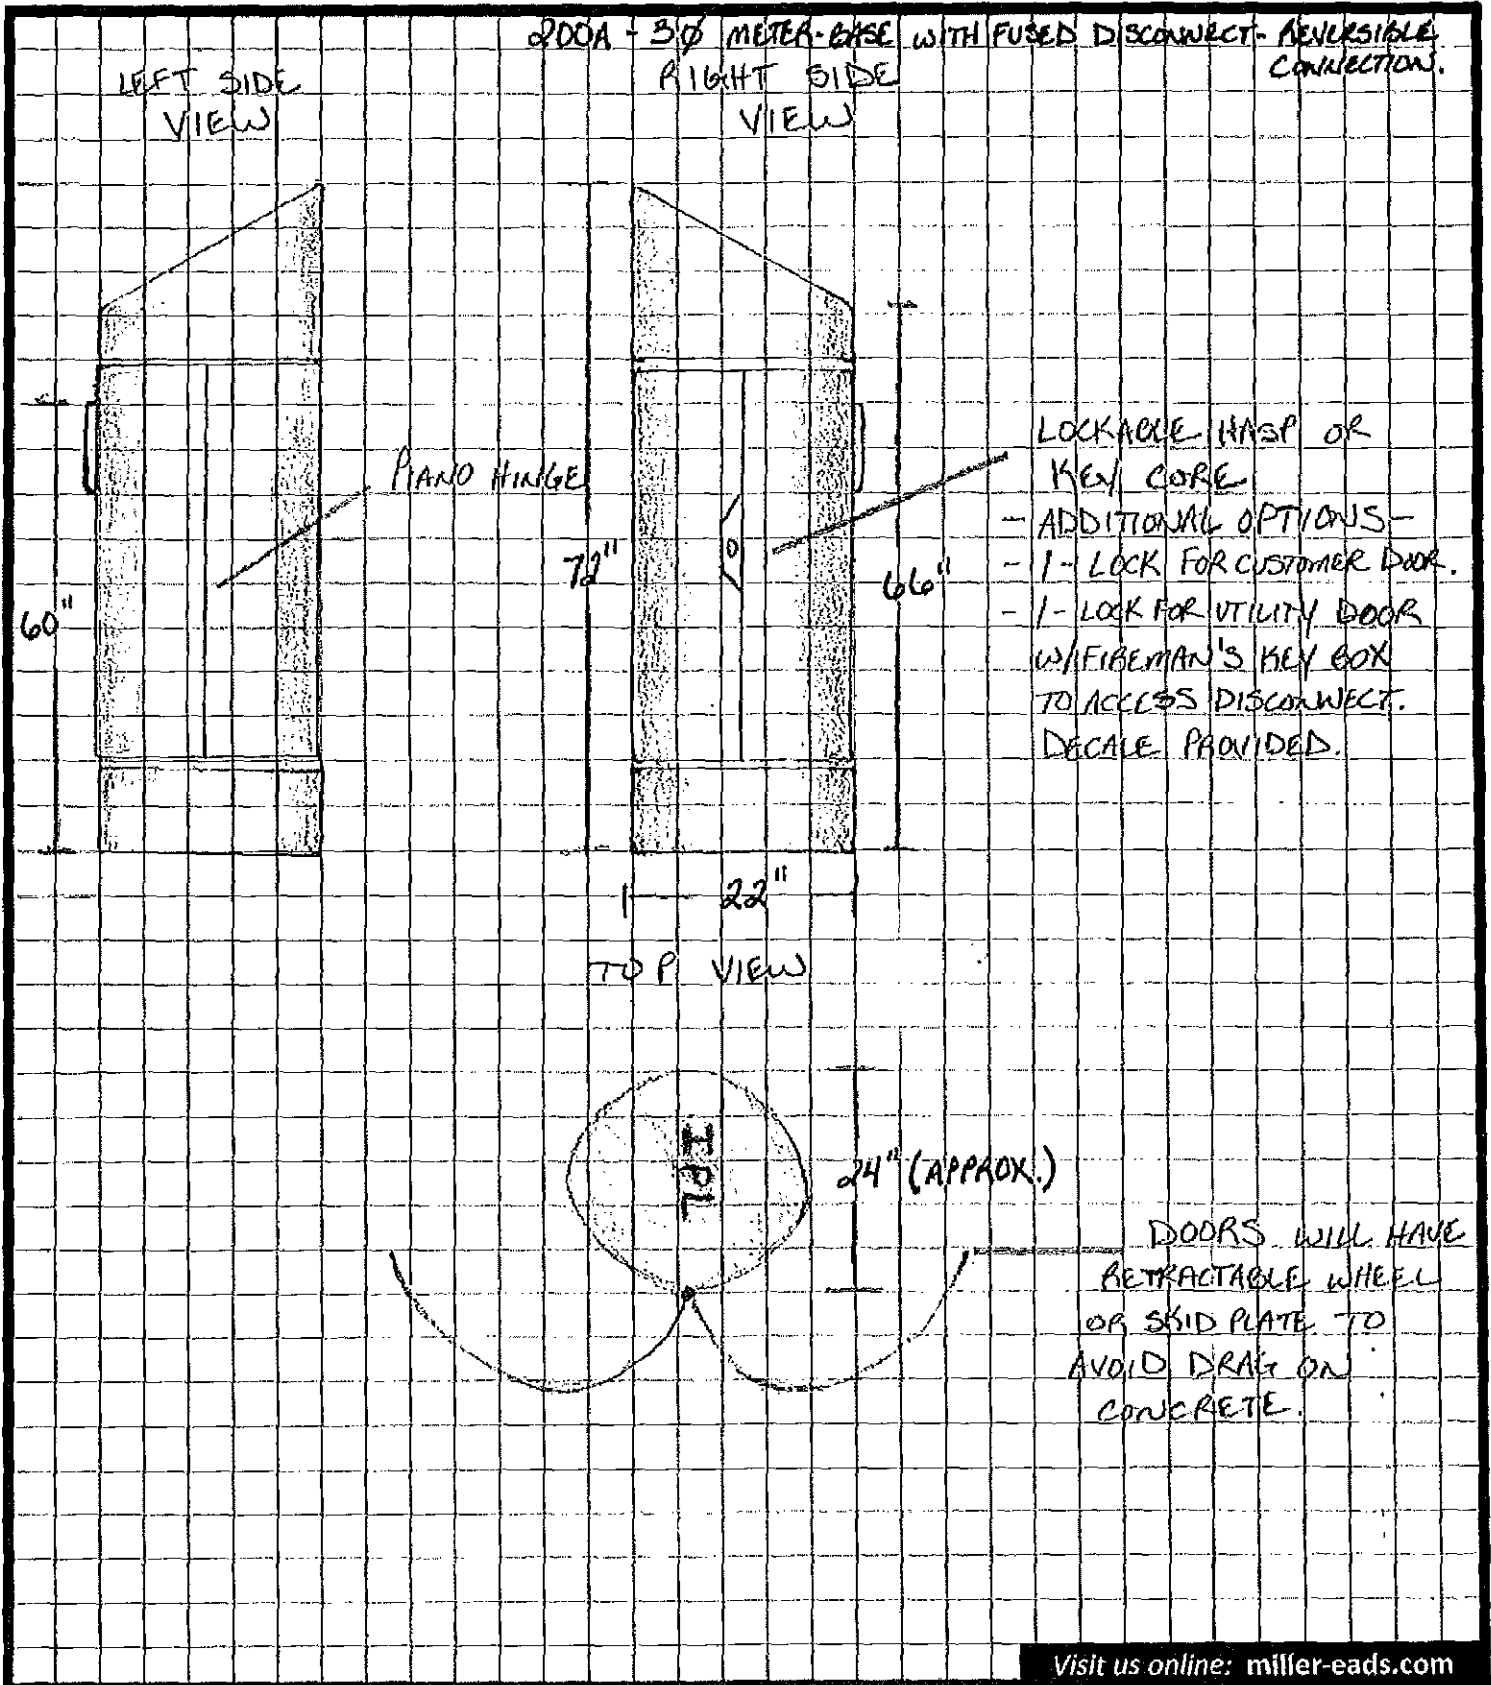 200A - 3Ø METER-BASE WITH FUSED DISCONNECT - REVERSIBLE
CONNECTION.
LEFT SIDE
VIEW
RIGHT SIDE
VIEW
PIANO HINGE
60"
72"
66"
LOCKABLE HASP OR
KEY CORE
- ADDITIONAL OPTIONS -
- 1 - LOCK FOR CUSTOMER DOOR.
- 1 - LOCK FOR UTILITY DOOR
W/FIREMAN'S KEY BOX
TO ACCESS DISCONNECT.
DECALE PROVIDED.
22"
TOP VIEW
IPL
24" (APPROX.)
DOORS WILL HAVE
RETRACTABLE WHEEL
OR SKID PLATE TO
AVOID DRAG ON
CONCRETE.
Visit us online: miller-eads.com